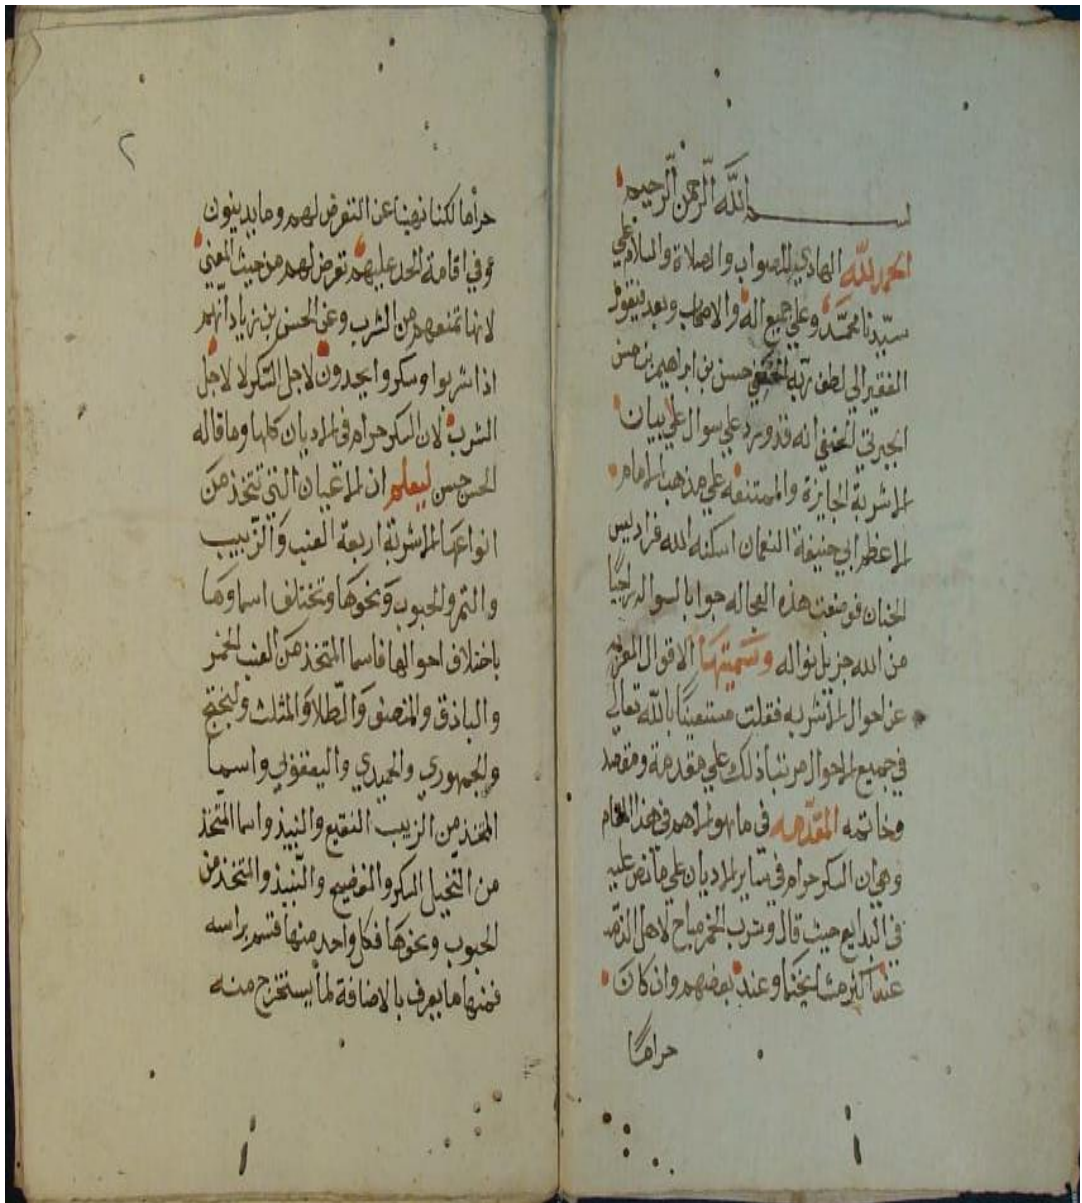 بسم الله الرحمن الرحيم
الحمد لله الهادي للصواب والصلاة والسلام علي
سيدنا محمد وعلي جميع اله والاصحاب وبعد فيقول
الفقير الي لطف ربه الخفي حسن بن ابراهيم بن حسن
الجبرتي الحنفي انه قد ورد علي سوال علي بيان
الاشربة الجايزة والممتنعه علي مذهب الامام
الاعظم ابي حنيفة النعمان اسكنه الله فراديس
الجنان فوضعت هذه العجاله جوابا لسواله راجيا
من الله جزيل نواله وسميتها الاقوال المعربه
عن احوال الاشربه فقلت مستعينا بالله تعالي
في جميع الاحوال مرتبا ذلك علي مقدمة ومقصد
وخاتمه المقدمه في ما هو الاهم في هذا المقام
وهي ان السكر حرام في ساير الاديان علي ما نص عليه
في البدايع حيث قال وشرب الخمر مباح لاهل الذمه
عند اكثر مشايخنا وعند بعضهم وان كان
حراما
٢
حراما لكنا نهينا عن التعرض لهم وما يدينون
وفي اقامة الحد عليهم تعرض لهم من حيث المعني
لانها تمنعهم من الشرب وعن الحسن بن زياد انهم
اذا شربوا وسكروا يحدون لاجل السكر لا لاجل
الشرب لان السكر حرام في الاديان كلها وما قاله
الحسن حسن ليعلم ان الاعيان التي تتخذ من
انواعها الاشربة اربعة العنب والزبيب
والتمر والحبوب ونحوها وتختلف اسماوها
باختلاف احوالها فاسما المتخذ من العنب الخمر
والباذق والمنصف والطلا والمثلث والبختج
والجمهوري والحميدي واليعقوبي واسما
المتخذ من الزبيب النقيع والنبيذ واسما المتخذ
من النخيل السكر والفضيخ والنبيذ والمتخذ من
الحبوب ونحوها فكل واحد منها قسم براسه
فمنها ما يعرف بالاضافة لما يستخرج منه